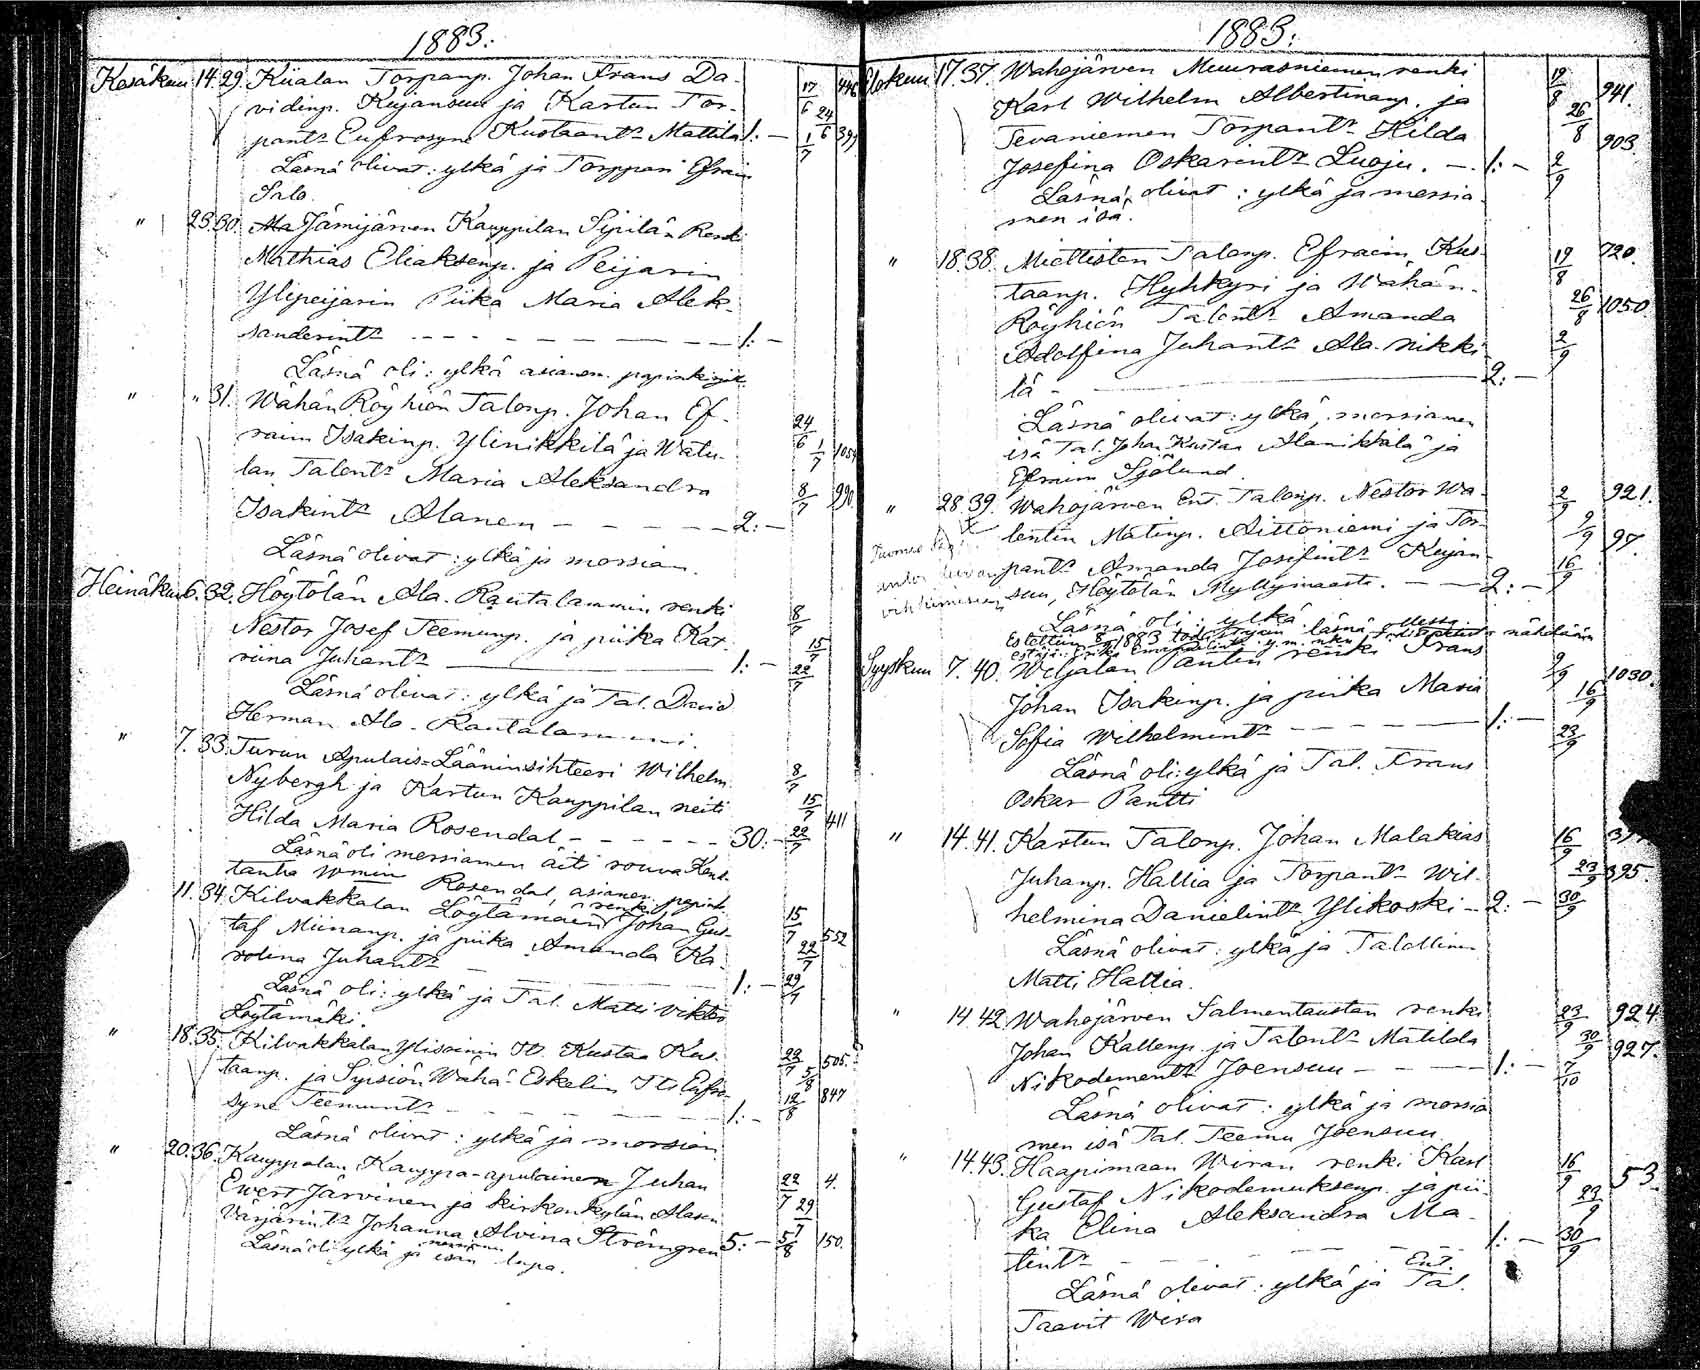 1883:
Kesäkuu 14. 29. Kiialan Torpanp. Johan Frans Da- 17/6 446
vidinp. Kujansuu ja Kartun Tor- 24/6
pantr Eufrosyne Kustaantr Mattila 1:- 1/7 399
Läsnä olivat: ylkä ja Torppari Efraim
Salo.
" 23. 30. Jämijärven Kauppilan Sipilän Renki
Mathias Eliaksenp. ja Peijarin
Ylipeijarin Piika Maria Alek-
sanderintr - - - - 1:-
Läsnä oli: ylkä asianom. papinkirjat.
" " 31. Wähän Röyhiön Talonp. Johan Ef- 24/6
raim Isakinp. Ylinikkilä ja Watu- 1/7 1054
lan Talontr Maria Aleksandra 8/7 990
Isakintr Alanen - - - - - 2:-
Läsnä olivat: ylkä ja morsian.
Heinäkuu 6. 32. Höytölän Ala-Rautalammin renki 8/7
Nestor Josef Teemunp. ja piika Kat- 15/7
riina Juhantr 1:- 22/7
Läsnä olivat: ylkä ja Tal. David
Herman Ala-Rautalammi.
" 7. 33. Turun Apulais-Lääninsihteeri Wilhelm 8/7
Nybergh ja Kartun Kauppilan neiti 15/7
Hilda Maria Rosendal - - - - - 30:- 22/7 411
Läsnä oli morsiamen äiti rouva Kons-
tantia Rosendal, asianom. papink.
11. 34. Kilvakkalan Löytämäen renki Johan Gus- 15/7
taf Miinanp. ja piika Amanda Ka- 22/7 552
rolina Juhantr 1:- 29/7
Läsnä oli: ylkä ja Tal. Matti Viktor
Löytämäki.
" 18. 35. Kilvakkalan Ylisoinin It. Kustaa Kus- 22/7 505.
taanp. ja Sipsiön Wähä-Eskelin It. Eufro- 5/8
syne Teemuntr 1:- 12/8 847
Läsnä olivat: ylkä ja morsian
" 20. 36. Kauppalan Kauppa-apulainen Juhan 22/7 4.
Ewert Järvinen ja kirkonkylän Alasen 29/7
Värjärintr Johanna Alvina Strömgren 5:- 5/8 150.
Läsnä oli ylkä ja morsiamen isän lupa.
1883:
Elokuu 17. 37. Wahojärven Muurasniemen renki 19/8 941.
Karl Wilhelm Albertinanp. ja 26/8
Tevaniemen Torpantr Hilda 903.
Josefina Oskarintr Luoju. - 1:- 2/9
Läsnä olivat: ylkä ja morsia-
men isä.
" 18. 38. Miettisten Talonp. Efraim Kus- 19/8 720.
taanp. Hyhkyri ja Wähän-
Röyhiön Talontr Amanda 26/8 1050
Adolfina Juhantr Ala-nikki- 2/9
lä - 2:-
Läsnä olivat: ylkä, morsiamen
isä Tal. Johan Kustaa Alanikkilä ja
Efraim Sjölund.
" 28. 39. Wahojärven Ent. Talonp. Nestor Wa- 2/9 921.
lentin Matinp. Aittoniemi ja Tor- 9/9 97.
pantr Amanda Josefintr Kujan- 16/9
suu, Höytölän Myllymaasta. - - 2:-
vihkimiseen
Läsnä oli: ylkä.
Syyskuu 7. 40. Weljatan Pantin renki Frans 9/9 1030.
Johan Isakinp. ja piika Maria 16/9
Sofia Wilhelmintr - - - - 1:- 23/9
Läsnä oli: ylkä ja Tal. Frans
Oskar Pantti
" 14. 41. Kartun Talonp. Johan Malakias 16/9
Juhanp. Hallia ja Torpantr Wil- 23/9 395.
helmina Danielintr Ylikoski - 2:- 30/9
Läsnä olivat: ylkä ja Talollinen
Matti Hallia.
" 14. 42. Wahojärven Salmentaustan renki 23/9 924
Johan Kallenp. ja Talontr Matilda 30/9 927.
Nikodemuntr Joensuu - - - 1:- 7/10
Läsnä olivat: ylkä ja morsia
men isä Tal. Teemu Joensuu
" 14. 43. Haapimaan Wiran renki Karl 16/9 53
Gustaf Nikodemuksenp. ja pii- 23/9
ka Elina Aleksandra Ma-
tintr - - - - 1:- 30/9
Läsnä olivat: ylkä ja Ent. Tal.
Taavit Wira